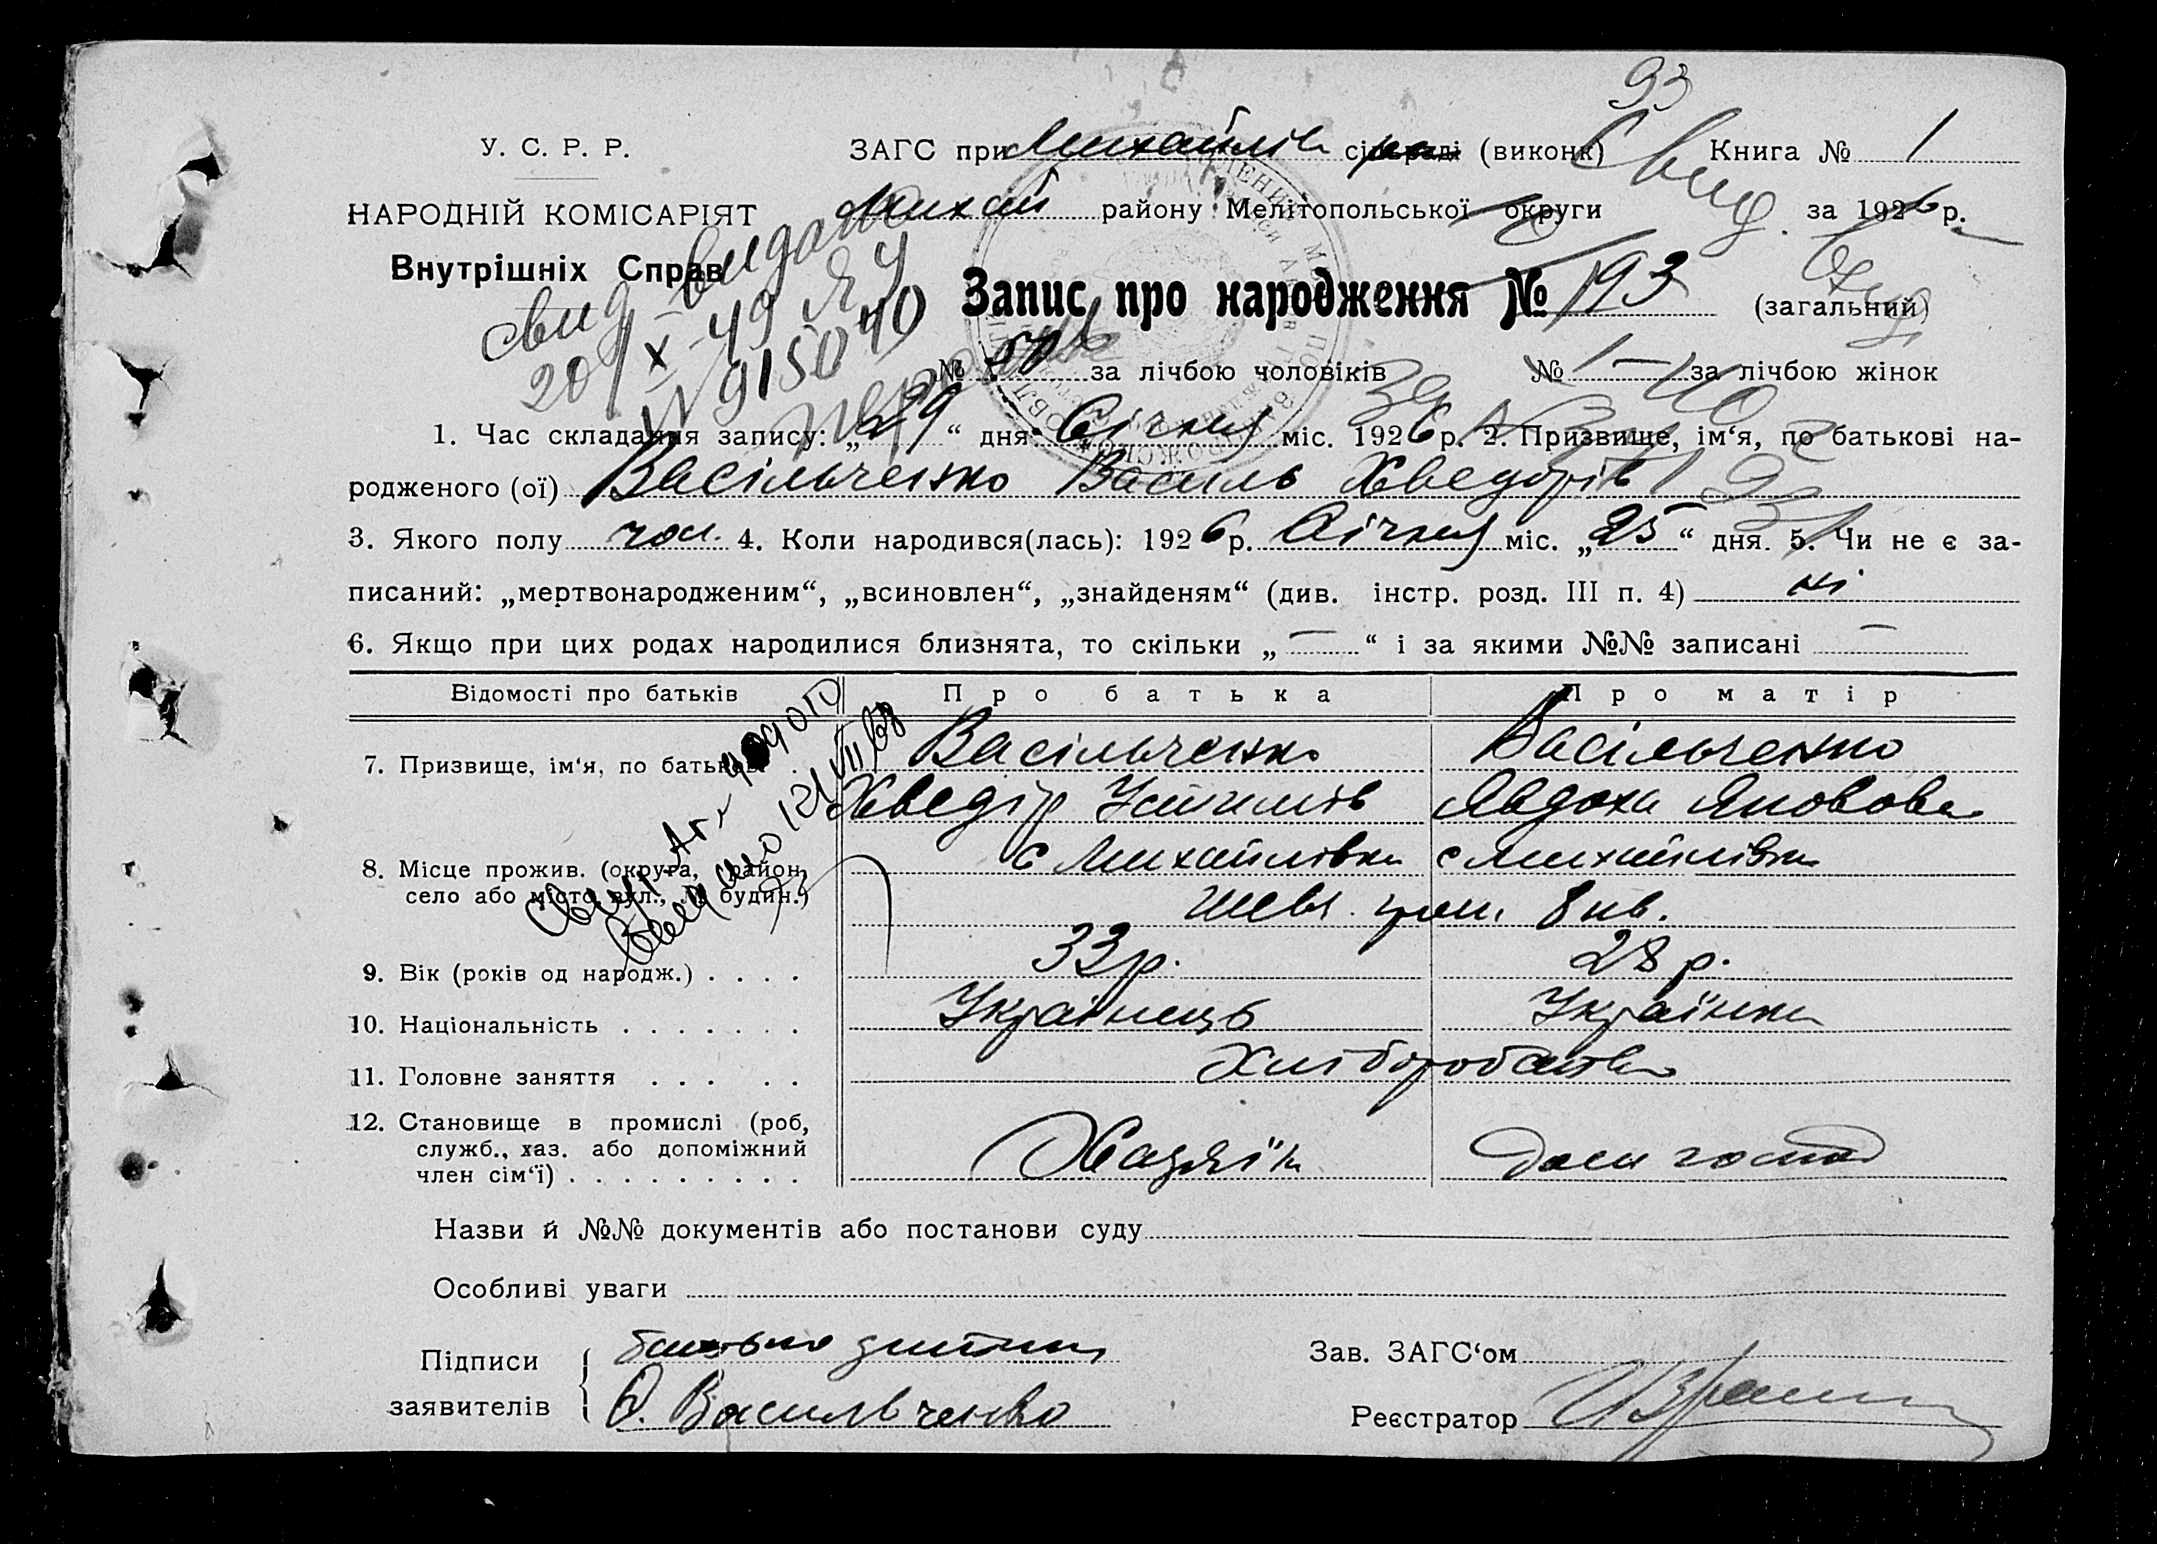 93
У. С. Р. Р. ЗАГС при Михайлів сільраді (виконк) Книга № 1
НАРОДНІЙ КОМІСАРІЯТ Михай району Мелітопольської округи за 1926 р.
Внутрішніх Справ
Запис про народження № 193 (загальний)
свид видано
20/X-49 ЯЧ
№ 915040
№ за лічбою чоловіків № — за лічбою жінок
1. Час складання запису: „29“ дня Січня міс. 1926 р. 2. Призвище, ім‘я, по батькові на-
родженого (ої) Васільченко Василь Хведорів
3. Якого полу чол. 4. Коли народився(лась): 1926 р. Січня міс. „25“ дня. 5. Чи не є за-
писаний: „мертвонародженим“, „всиновлен“, „знайденям“ (див. інстр. розд. III п. 4) ні
6. Якщо при цих родах народилися близнята, то скільки „—“ і за якими №№ записані —
Відомості про батьків Про батька Про матір
7. Призвище, ім‘я, по батькові . Васільченко Васільченко
Хведір Устимів Явдоха Яковова
8. Місце прожив. (округа, район, с Михайлівка с Михайлівка
село або місто, вул., № будин.) Шевч. 8 кв.
9. Вік (років од народж.) . . . . 33 р. 28 р.
10. Національність . . . . . . . Українець Українка
11. Головне заняття . . . . . Хліборобство
12. Становище в промислі (роб,
служб., хаз. або допоміжний Хазяїн Дом господ
член сім‘ї) . . . . . . . . .
Назви й №№ документів або постанови суду
Особливі уваги
Підписи батько дитини Зав. ЗАГС‘ом
заявителів Ф. Васильченко Реєстратор